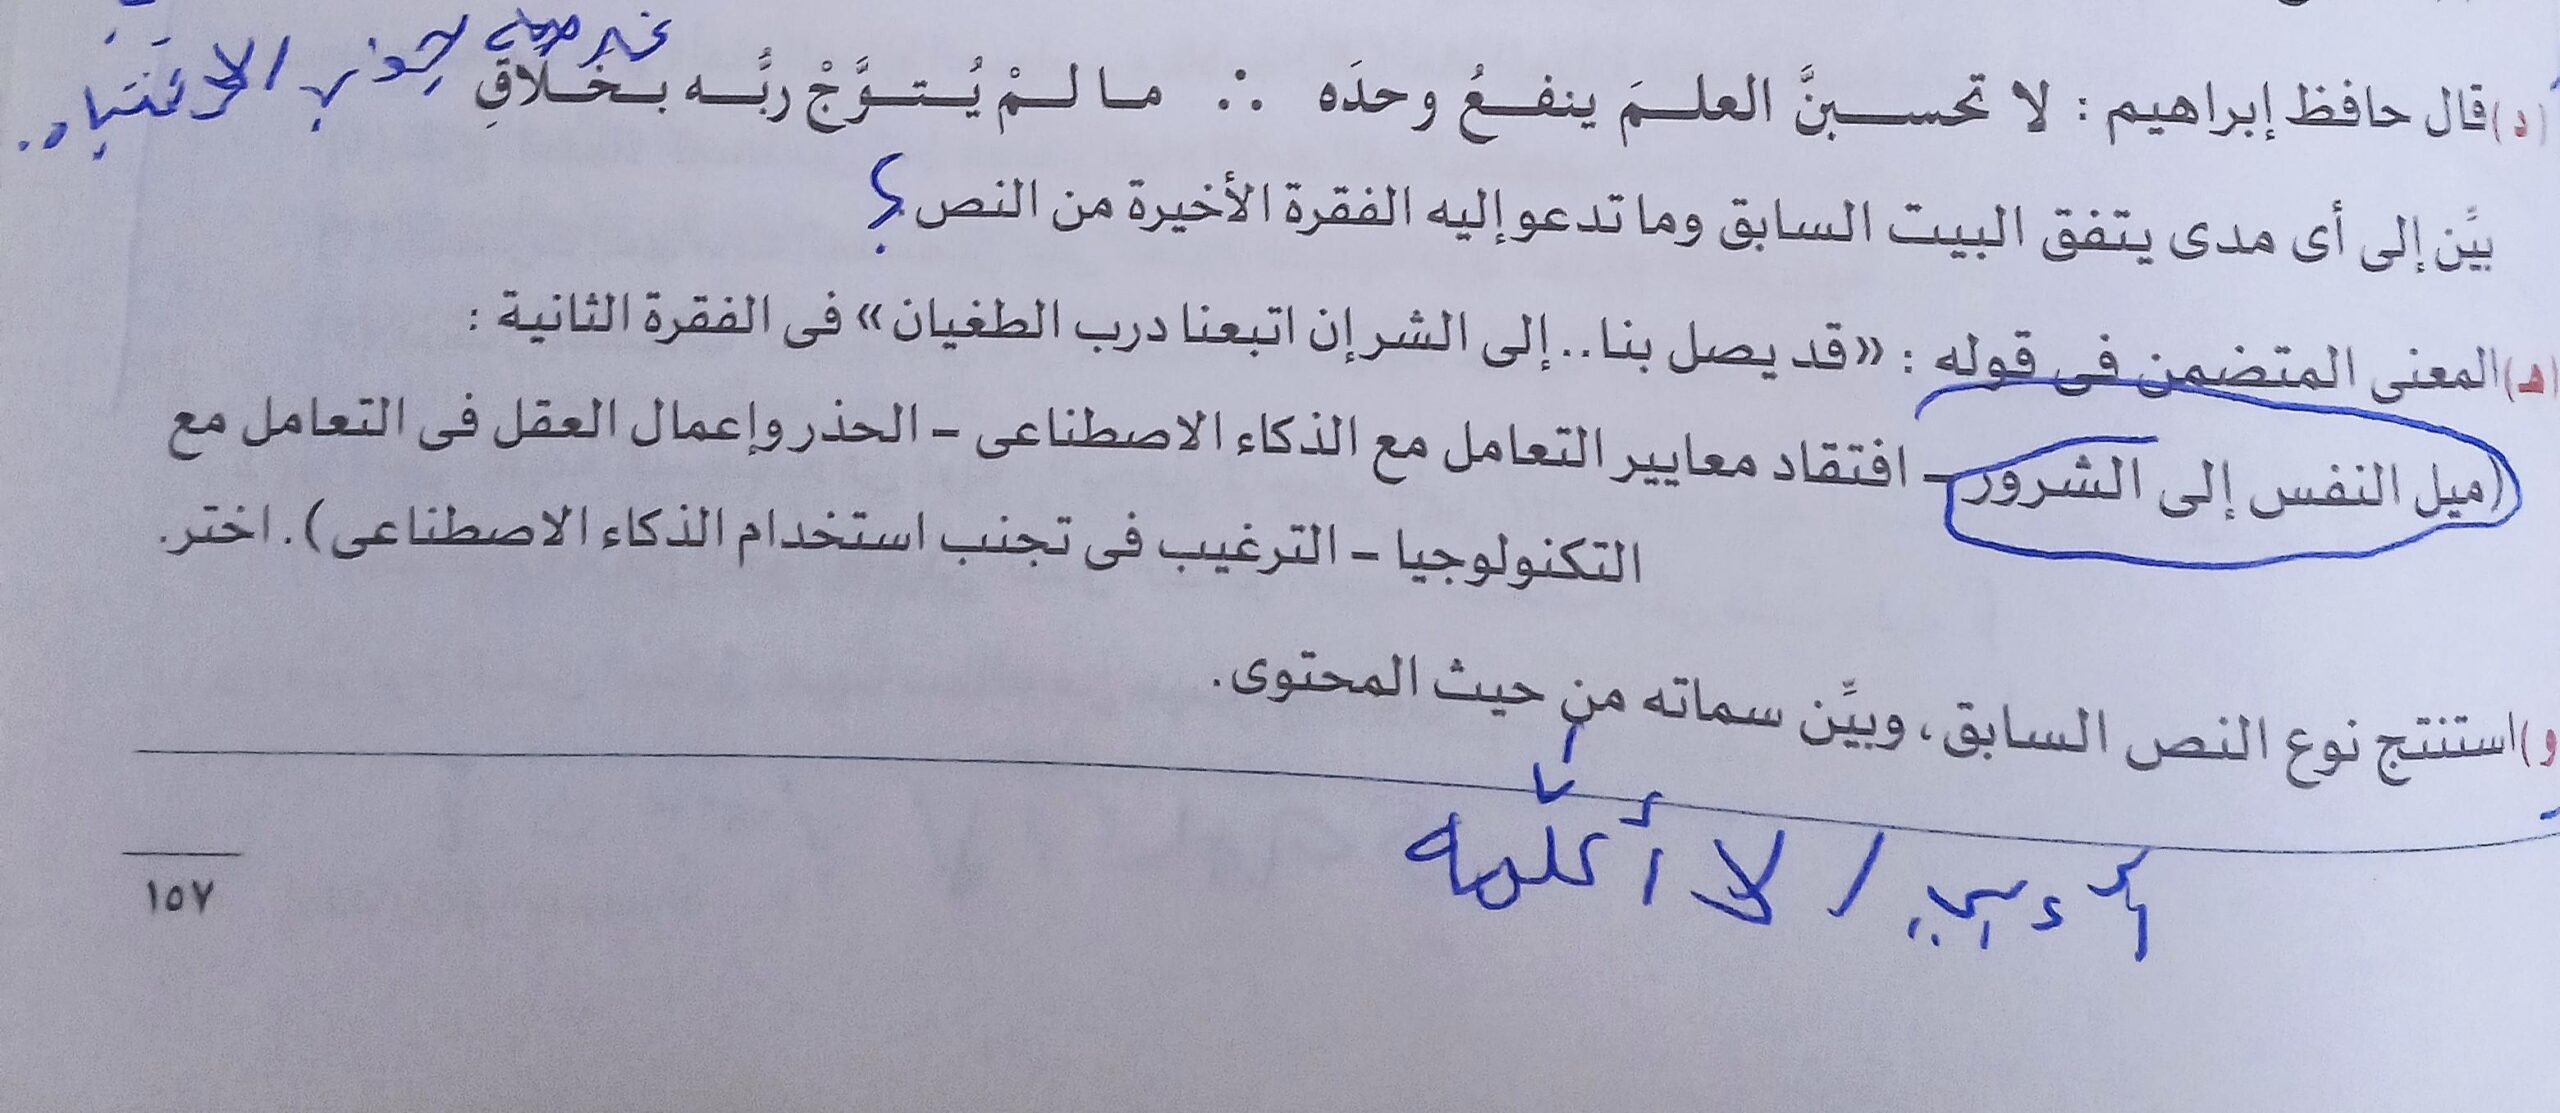 غير
لجذب الانتباه
(د) قال حافظ إبراهيم : لا تحسبنَّ العلمَ ينفعُ وحدَه ∴ ما لمْ يُتوَّجْ ربُّه بخلاقِ
بيِّن إلى أى مدى يتفق البيت السابق وما تدعو إليه الفقرة الأخيرة من النص . ؟
(هـ) المعنى المتضمن فى قوله : «قد يصل بنا .. إلى الشر إن اتبعنا درب الطغيان» فى الفقرة الثانية :
(ميل النفس إلى الشرور - افتقاد معايير التعامل مع الذكاء الاصطناعى - الحذر وإعمال العقل فى التعامل مع
التكنولوجيا - الترغيب فى تجنب استخدام الذكاء الاصطناعى) . اختر.
(و) استنتج نوع النص السابق ، وبيِّن سماته من حيث المحتوى .
١٥٧